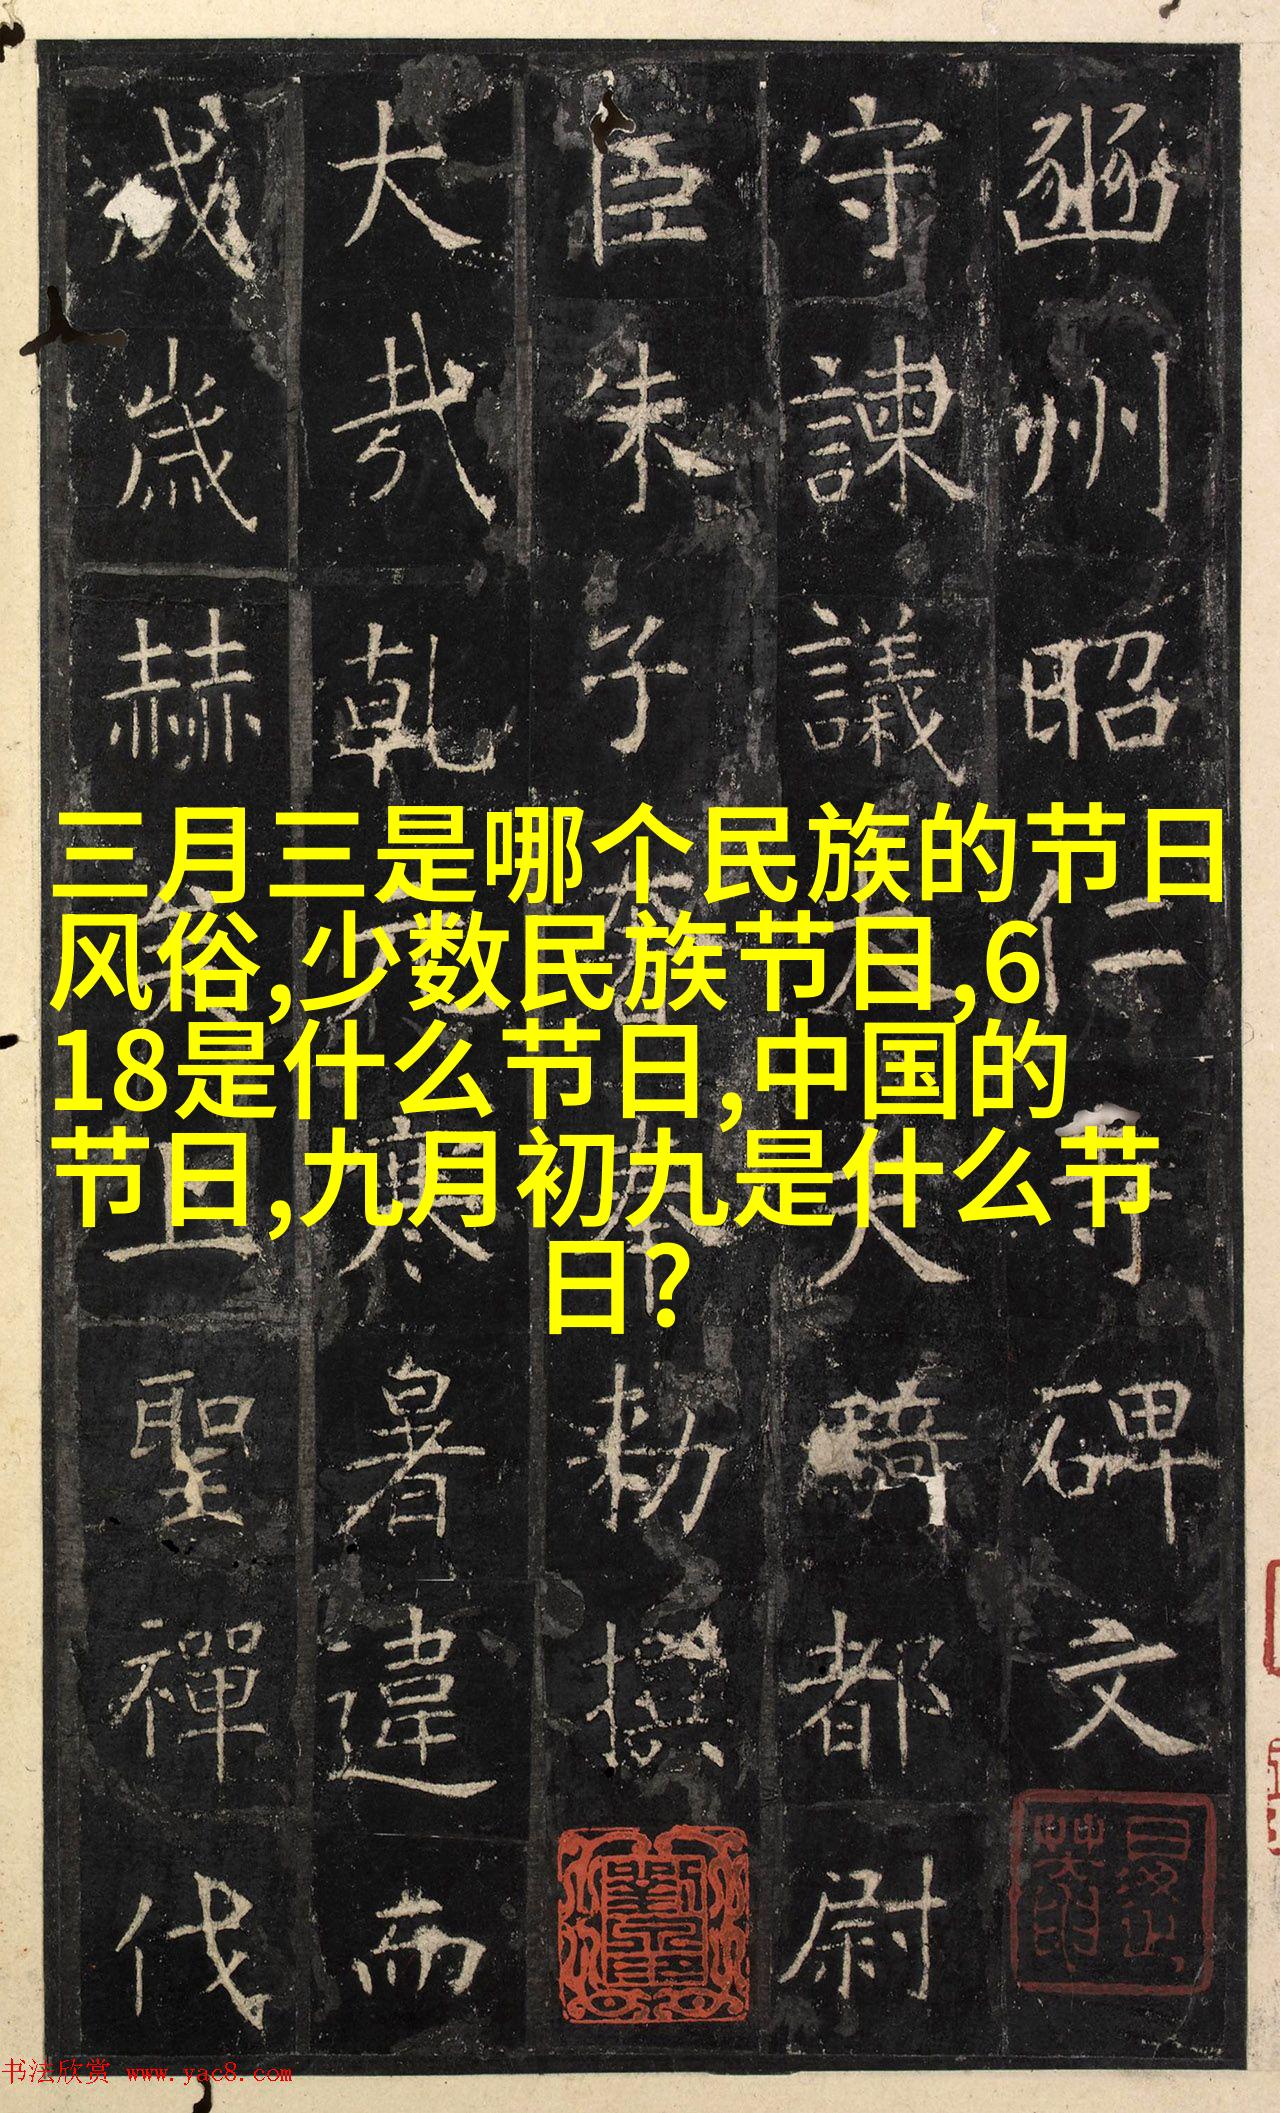 豳州昭仁寺碑文
守諫議大夫騎都尉
臣朱子奢奉勑撰
大哉乾元寒暑違而
成歲赫矣上聖禪代
三月三是哪个民族的节日
风俗,少数民族节日,6
18是什么节日,中国的
节日,九月初九是什么节
日?
书法欣赏 www.yac8.com